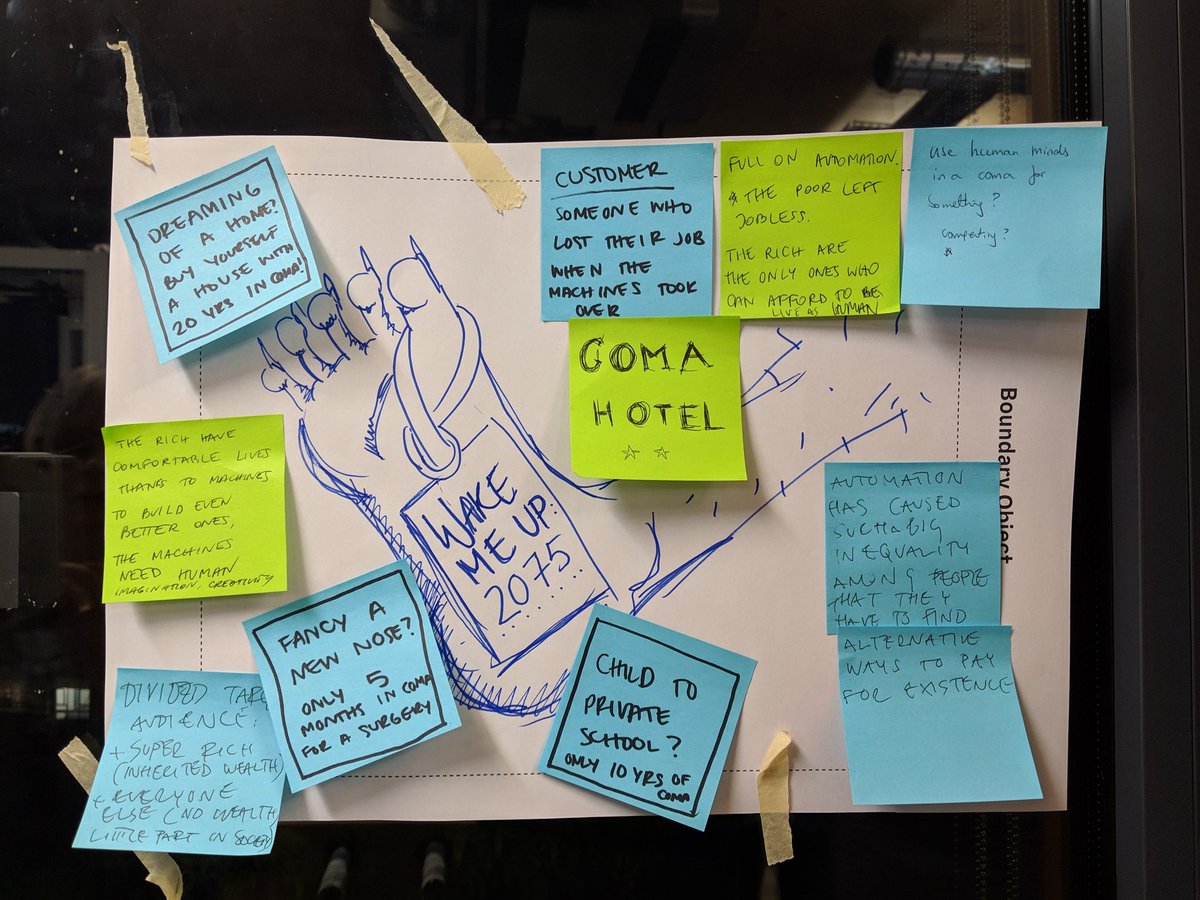 DREAMING
OF A HOME?
BUY YOURSELF
A HOUSE WITH
20 YRS IN COMA!
CUSTOMER
SOMEONE WHO
LOST THEIR JOB
WHEN THE
MACHINES TOOK
OVER
FULL ON AUTOMATION.
THE POOR LEFT
JOBLESS.
THE RICH ARE
THE ONLY ONES WHO
CAN AFFORD TO BE
LIVE AS HUMAN
use human minds
in a coma for
something?
computing?
COMA
HOTEL
☆ ☆
Boundary Object
THE RICH HAVE
COMFORTABLE LIVES
THANKS TO MACHINES
TO BUILD EVEN
BETTER ONES,
THE MACHINES
NEED HUMAN
IMAGINATION, CREATIVITY
WAKE
ME UP:
2075
AUTOMATION
HAS CAUSED
SUCH A BIG
INEQUALITY
AMONG PEOPLE
THAT THEY
HAVE TO FIND
ALTERNATIVE
WAYS TO PAY
FOR EXISTENCE
FANCY A
NEW NOSE?
ONLY 5
MONTHS IN COMA
FOR A SURGERY
CHILD TO
PRIVATE
SCHOOL?
ONLY 10 YRS OF
COMA
DIVIDED
AUDIENCE:
+ SUPER RICH
(INHERITED WEALTH)
+ EVERYONE
ELSE (NO WEALTH,
LITTLE PART IN SOCIETY)